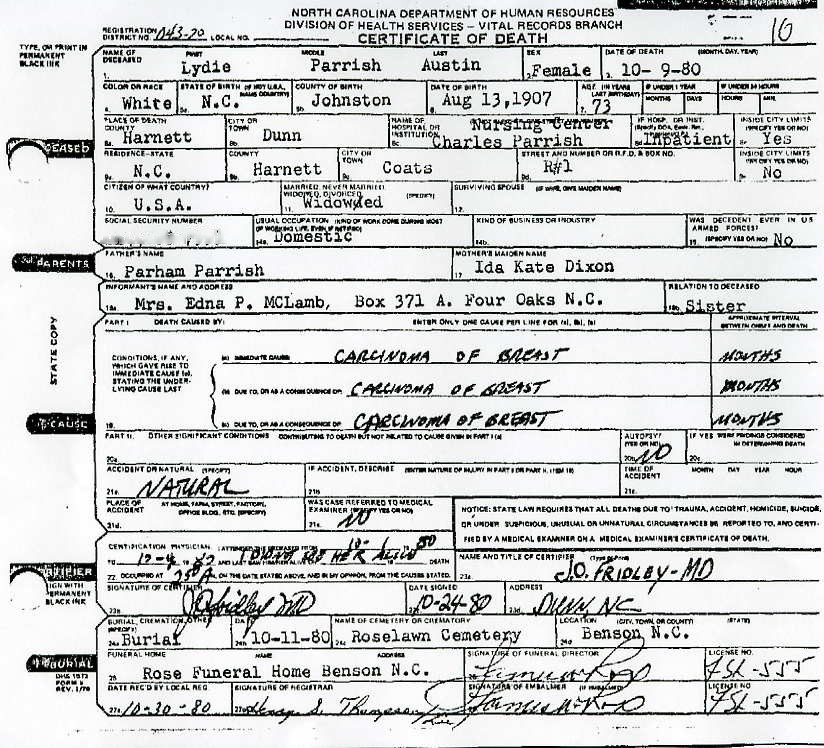 NORTH CAROLINA DEPARTMENT OF HUMAN RESOURCES
DIVISION OF HEALTH SERVICES - VITAL RECORDS BRANCH
CERTIFICATE OF DEATH
REGISTRATION DISTRICT NO. 043-20 LOCAL NO.
10
TYPE, OR PRINT IN PERMANENT BLACK INK
NAME OF DECEASED FIRST MIDDLE LAST SEX DATE OF DEATH (MONTH, DAY, YEAR)
1. Lydie Parrish Austin 2. Female 3. 10- 9-80
COLOR OR RACE STATE OF BIRTH (IF NOT U.S.A., NAME COUNTRY) COUNTY OF BIRTH DATE OF BIRTH AGE (IN YEARS LAST BIRTHDAY) IF UNDER 1 YEAR IF UNDER 24 HOURS
MONTHS DAYS HOURS MIN.
4. White 5a. N.C. 5b. Johnston 6. Aug 13,1907 7. 73
PLACE OF DEATH COUNTY CITY OR TOWN NAME OF HOSPITAL OR INSTITUTION Nursing Center IF HOSP. OR INST. INSIDE CITY LIMITS (SPECIFY YES OR NO)
8a. Harnett 8b. Dunn 8c. Charles Parrish 8d. Inpatient 8e. Yes
DECEASED
RESIDENCE-STATE COUNTY CITY OR TOWN STREET AND NUMBER OR R.F.D. & BOX NO. INSIDE CITY LIMITS (SPECIFY YES OR NO)
9a. N.C. 9b. Harnett 9c. Coats 9d. R#1 9e. No
CITIZEN OF WHAT COUNTRY? MARRIED, NEVER MARRIED, WIDOWED, DIVORCED (SPECIFY) SURVIVING SPOUSE (IF WIFE, GIVE MAIDEN NAME)
10. U.S.A. 11. Widowded 12.
SOCIAL SECURITY NUMBER USUAL OCCUPATION (KIND OF WORK DONE DURING MOST OF WORKING LIFE, EVEN IF RETIRED) KIND OF BUSINESS OR INDUSTRY WAS DECEDENT EVER IN US ARMED FORCES?
14a. Domestic 14b. 15. (SPECIFY YES OR NO) No
PARENTS
FATHER'S NAME MOTHER'S MAIDEN NAME
16. Parham Parrish 17. Ida Kate Dixon
INFORMANT'S NAME AND ADDRESS RELATION TO DECEASED
18a. Mrs. Edna P. MCLamb, Box 371 A. Four Oaks N.C. 18b. Sister
STATE COPY
PART I DEATH CAUSED BY: ENTER ONLY ONE CAUSE PER LINE FOR (a), (b), (c) APPROXIMATE INTERVAL BETWEEN ONSET AND DEATH
CONDITIONS, IF ANY, WHICH GAVE RISE TO IMMEDIATE CAUSE (a), STATING THE UNDERLYING CAUSE LAST
(a) IMMEDIATE CAUSE: CARCINOMA OF BREAST MONTHS
(b) DUE TO, OR AS A CONSEQUENCE OF CARCINOMA OF BREAST MONTHS
19. (c) DUE TO, OR AS A CONSEQUENCE OF CARCINOMA OF BREAST MONTHS
CAUSE
PART II. OTHER SIGNIFICANT CONDITIONS CONTRIBUTING TO DEATH BUT NOT RELATED TO CAUSE GIVEN IN PART I (a) AUTOPSY? (YES OR NO) IF YES WERE FINDINGS CONSIDERED IN DETERMINING DEATH
20a. 20b. NO 20c.
ACCIDENT OR NATURAL (SPECIFY) IF ACCIDENT, DESCRIBE (ENTER NATURE OF INJURY IN PART I OR PART II, ITEM 19) TIME OF ACCIDENT MONTH DAY YEAR HOUR
21a. NATURAL 21b.
PLACE OF ACCIDENT AT HOME, FARM, STREET, FACTORY, OFFICE BLDG., ETC. (SPECIFY) WAS CASE REFERRED TO MEDICAL EXAMINER? (SPECIFY YES OR NO)
21d. 21e. NO
NOTICE: STATE LAW REQUIRES THAT ALL DEATHS DUE TO TRAUMA, ACCIDENT, HOMICIDE, SUICIDE,
OR UNDER SUSPICIOUS, UNUSUAL OR UNNATURAL CIRCUMSTANCES BE REPORTED TO, AND CERTI-
FIED BY A MEDICAL EXAMINER ON A MEDICAL EXAMINER'S CERTIFICATE OF DEATH.
CERTIFICATION PHYSICIAN: I ATTENDED THE DECEASED FROM 10-1 80
DEATH
22. OCCURRED AT A M, ON THE DATE STATED ABOVE, AND IN MY OPINION, FROM THE CAUSES STATED.
NAME AND TITLE OF CERTIFIER (Type or Print)
23a. J.O. FRIDLEY-MD
CERTIFIER
SIGN WITH PERMANENT BLACK INK
SIGNATURE OF CERTIFIER DATE SIGNED ADDRESS
23b. JO Fridley MD 10-24-80 23d. DUNN NC
BURIAL, CREMATION, OTHER (SPECIFY) DATE NAME OF CEMETERY OR CREMATORY LOCATION (CITY, TOWN, OR COUNTY) (STATE)
24a. Burial 24b. 10-11-80 24c. Roselawn Cemetery 24d. Benson N.C.
BURIAL
DHS 1872
FORM 5
REV. 1/78
FUNERAL HOME NAME ADDRESS SIGNATURE OF FUNERAL DIRECTOR LICENSE NO.
25. Rose Funeral Home Benson N.C. James W Rose FSL-555
DATE REC'D BY LOCAL REG SIGNATURE OF REGISTRAR SIGNATURE OF EMBALMER (IF EMBALMED) LICENSE NO
27a. 10-30-80 27b. S. Thompson James W Rose FSL-555